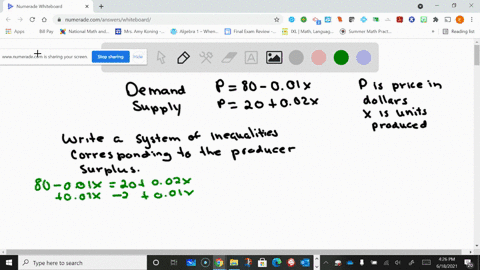 Numerade Whiteboard
numerade.com/answers/whiteboard/
Apps Bill Pay National Math and... Amy Koning - Algebra 1 - Whenev... Final Exam Review -... IXL | Math, Languag... Summer Math Practic... Reading list
www.numerade.com is sharing your screen. Stop sharing Hide
Demand P = 80 - 0.01x
Supply P = 20 + 0.02x
P is price in
dollars
x is units
produced
Write a system of inequalities
Corresponding to the producer
Surplus.
80 - 0.01x = 20 + 0.02x
+0.01x -2 + 0.01x
Type here to search
4:26 PM
6/18/2021